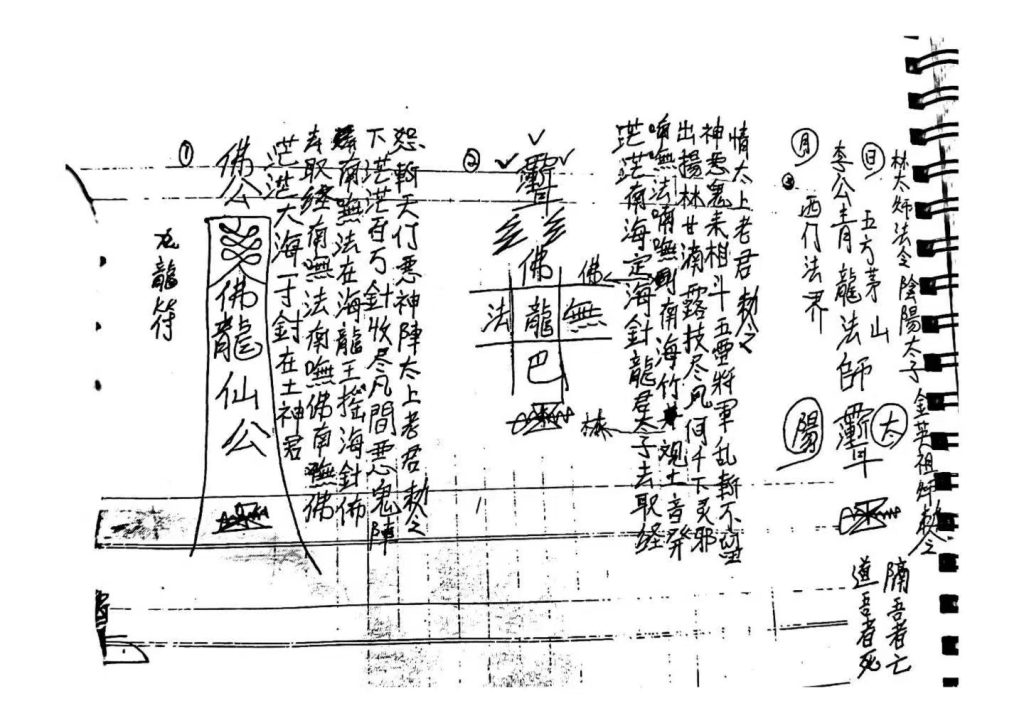 林太師法令陰陽太子金英祖師敕令
日
五方茅山
太
隔吾者亡
李公青龍法師
道吾者死
月
西行法界
陽
情太上老君敕令
神惡鬼來相斗五雷將軍乱斬不
出揚林甘滴露技尽凡何千下灵邪
喃無法喃無則南海竹林观土音癸
茫茫南海定海針龍君太子去取経
②
佛
佛
法龍無
巴
林
恕斬天行惡神陣太上老君敕令
下茫茫百万針收尽凡間惡鬼陣
南無法在海龍王搖海針佈
去取経南無法南無佛南無佛
茫茫大海一寸針在土神君
①
佛公
佛龍仙公
九龍符